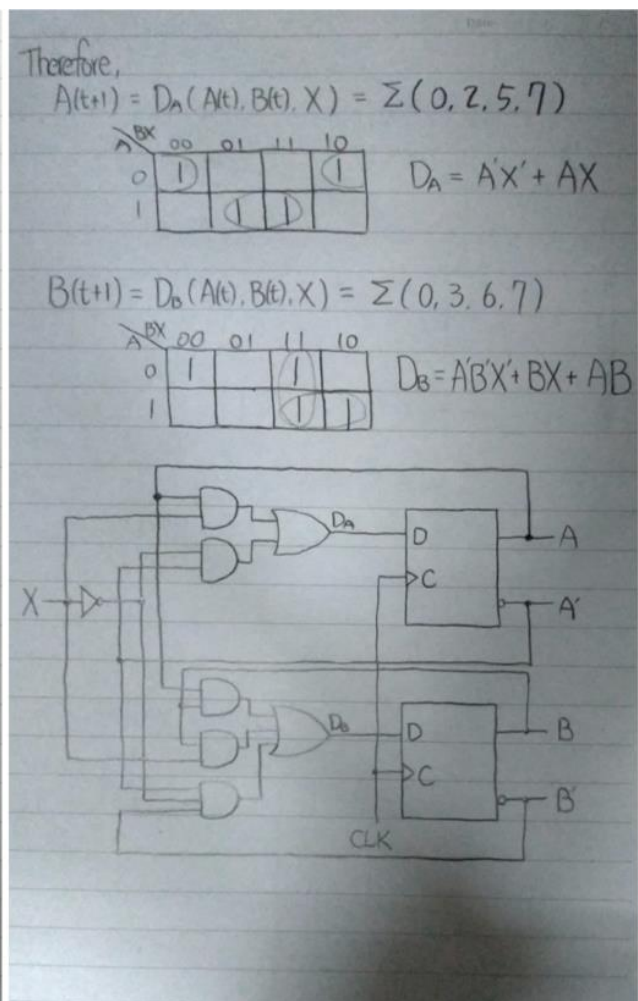 Therefore,
A(t+1) = D_A (A(t), B(t), X) = Σ(0, 2, 5, 7)
A BX 00 01 11 10
0 1 1
1 1 1
D_A = A'X' + AX
B(t+1) = D_B (A(t), B(t), X) = Σ(0, 3, 6, 7)
A BX 00 01 11 10
0 1 1
1 1 1
D_B = A'B'X' + BX + AB
D_A
D
A
C
X
A'
D_B
D
B
C
B'
CLK